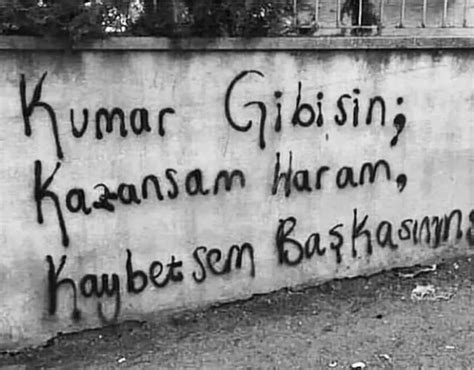 Kumar Gibisin;
Kazansam Haram,
Kaybetsem Başkasının;